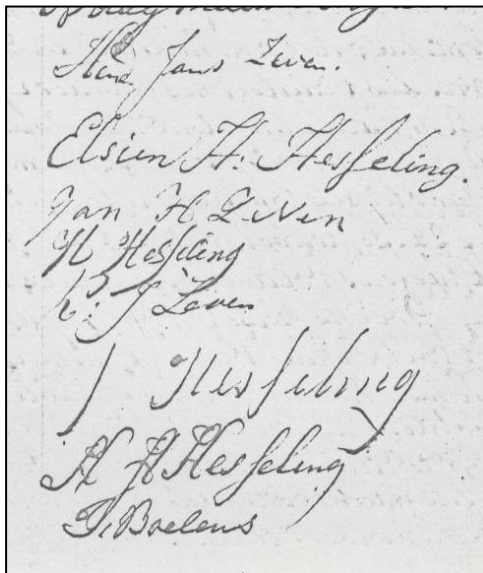 Hend Jans Zeven.
Elsien H. Hesseling.
Jan H Zeven
H Hesseling
R. J Zeven
J Hesseling
H H Hesseling
J. Boelens